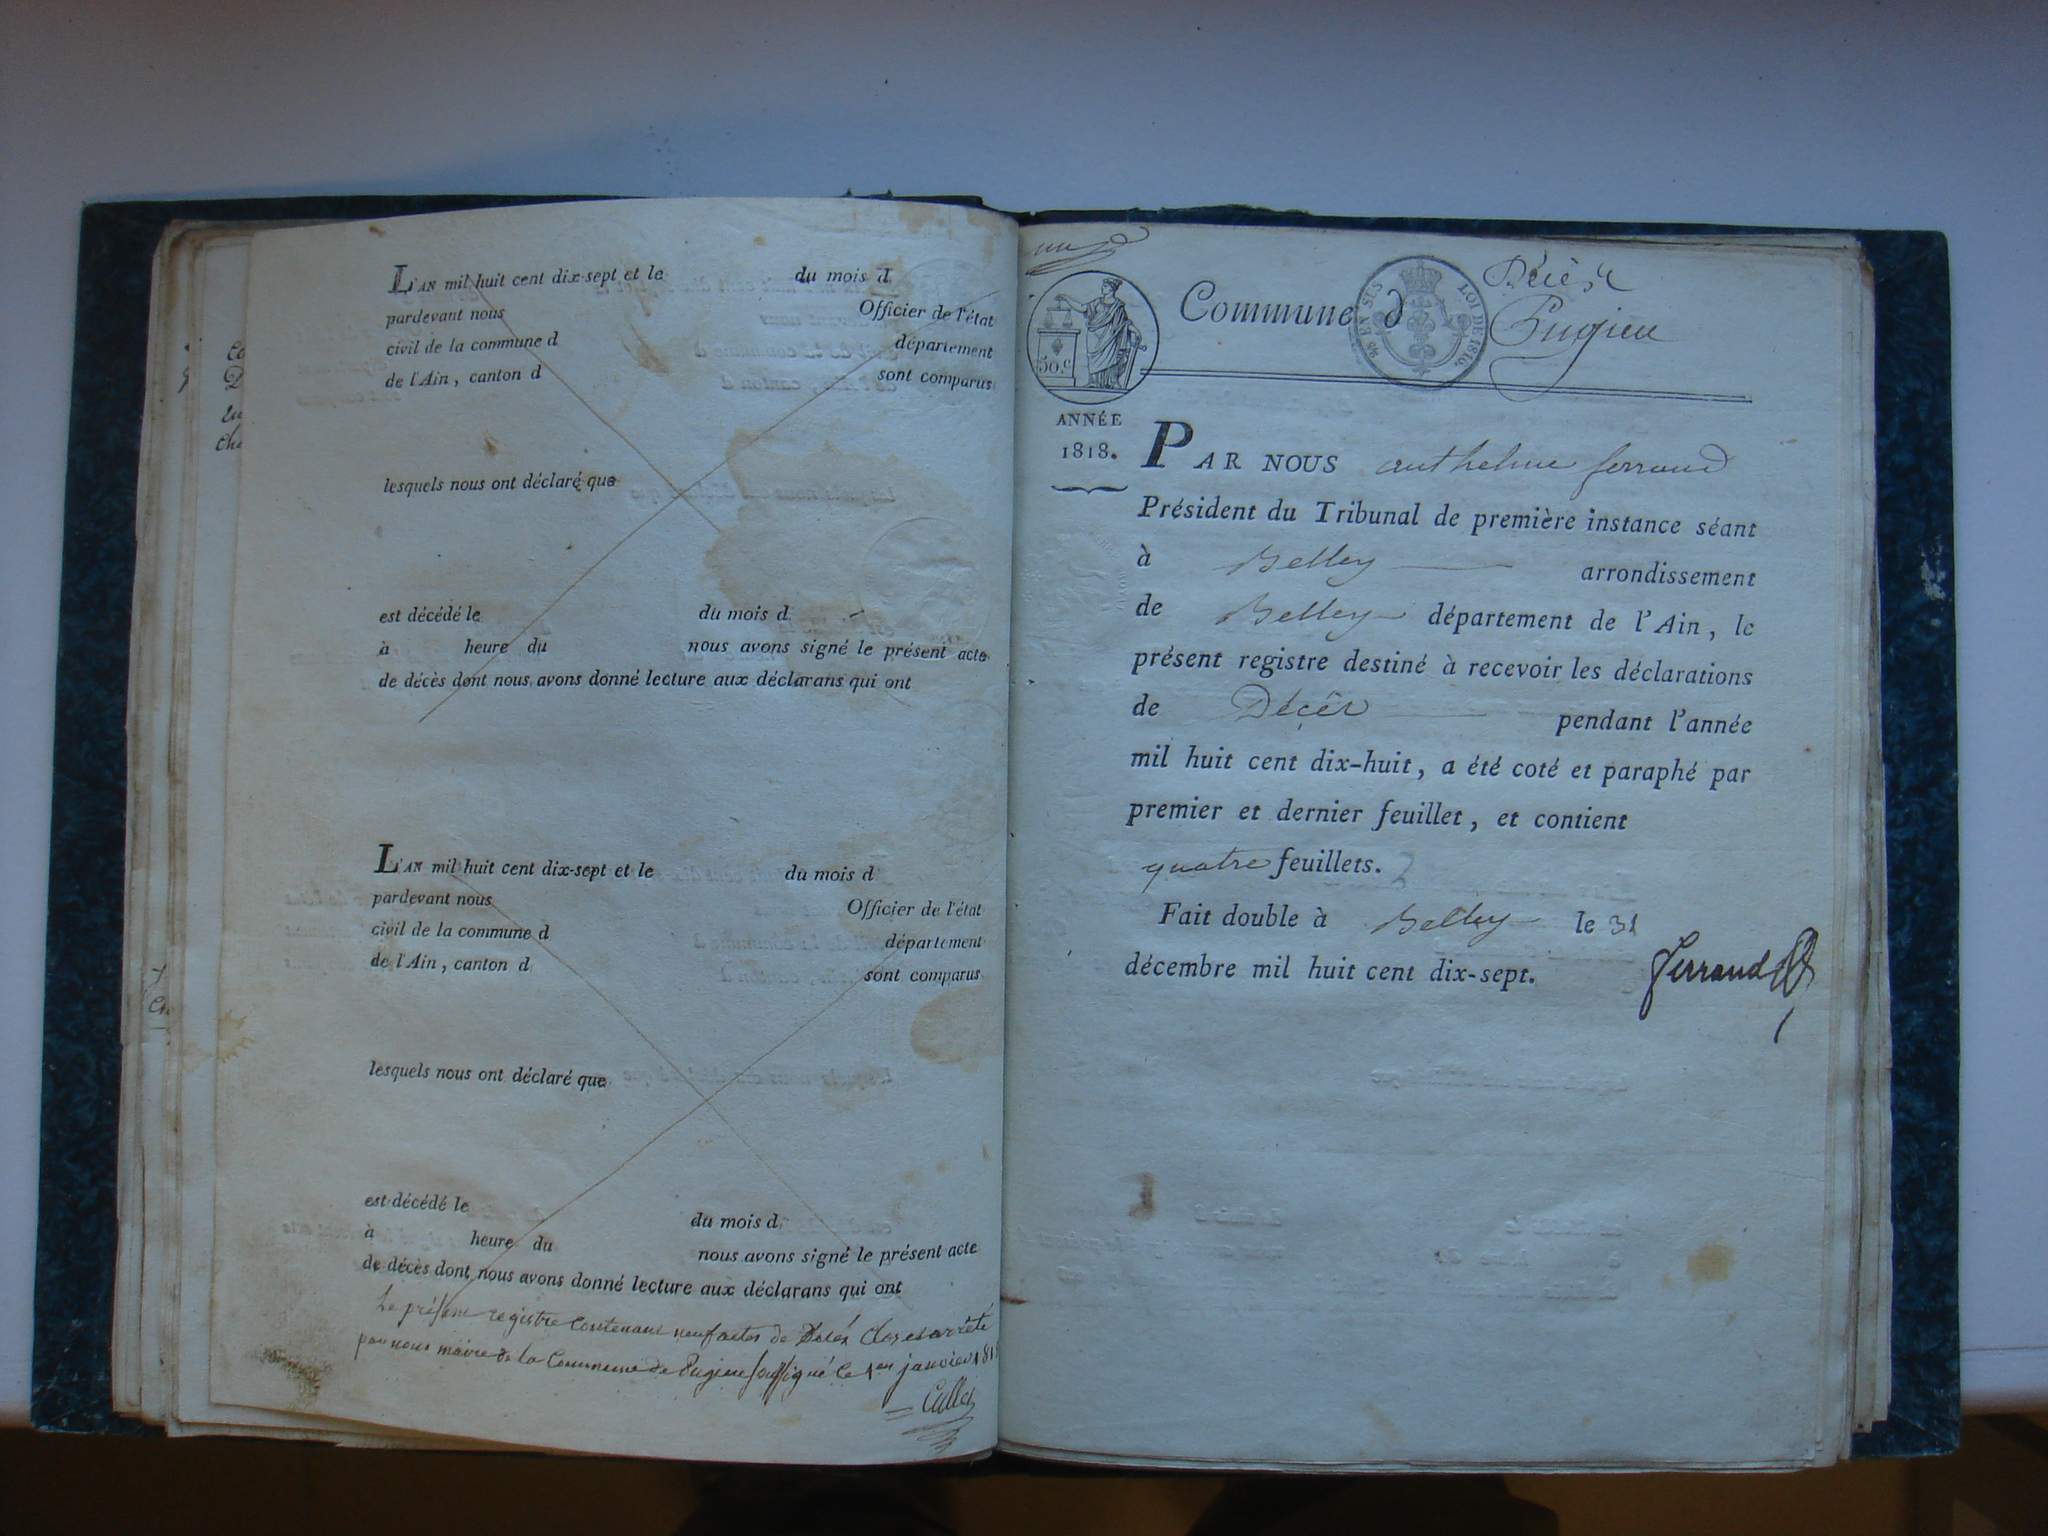 L'AN mil huit cent dix-sept et le du mois d
pardevant nous Officier de l'état
civil de la commune d département
de l'Ain, canton d sont comparus
lesquels nous ont déclaré que
est décédé le du mois d
à heure du nous avons signé le présent acte
de décès dont nous avons donné lecture aux déclarans qui ont
L'AN mil huit cent dix-sept et le du mois d
pardevant nous Officier de l'état
civil de la commune d département
de l'Ain, canton d sont comparus
lesquels nous ont déclaré que
est décédé le du mois d
à heure du nous avons signé le présent acte
de décès dont nous avons donné lecture aux déclarans qui ont
Le présent registre contenant neuf actes de Décés clos et arrêté
par nous maire de la Commune de Pugieu soussigné le 1er janvier
Décès
Commune d Pugieu
EN SUS LOI DE 1816.
50.c
ANNÉE
1818.
PAR NOUS anthelme ferrand
Président du Tribunal de première instance séant
à Belley arrondissement
de Belley département de l'Ain, le
présent registre destiné à recevoir les déclarations
de Décès pendant l'année
mil huit cent dix-huit, a été coté et paraphé par
premier et dernier feuillet, et contient
quatre feuillets.
Fait double à Belley le 31
décembre mil huit cent dix-sept.
Ferrand